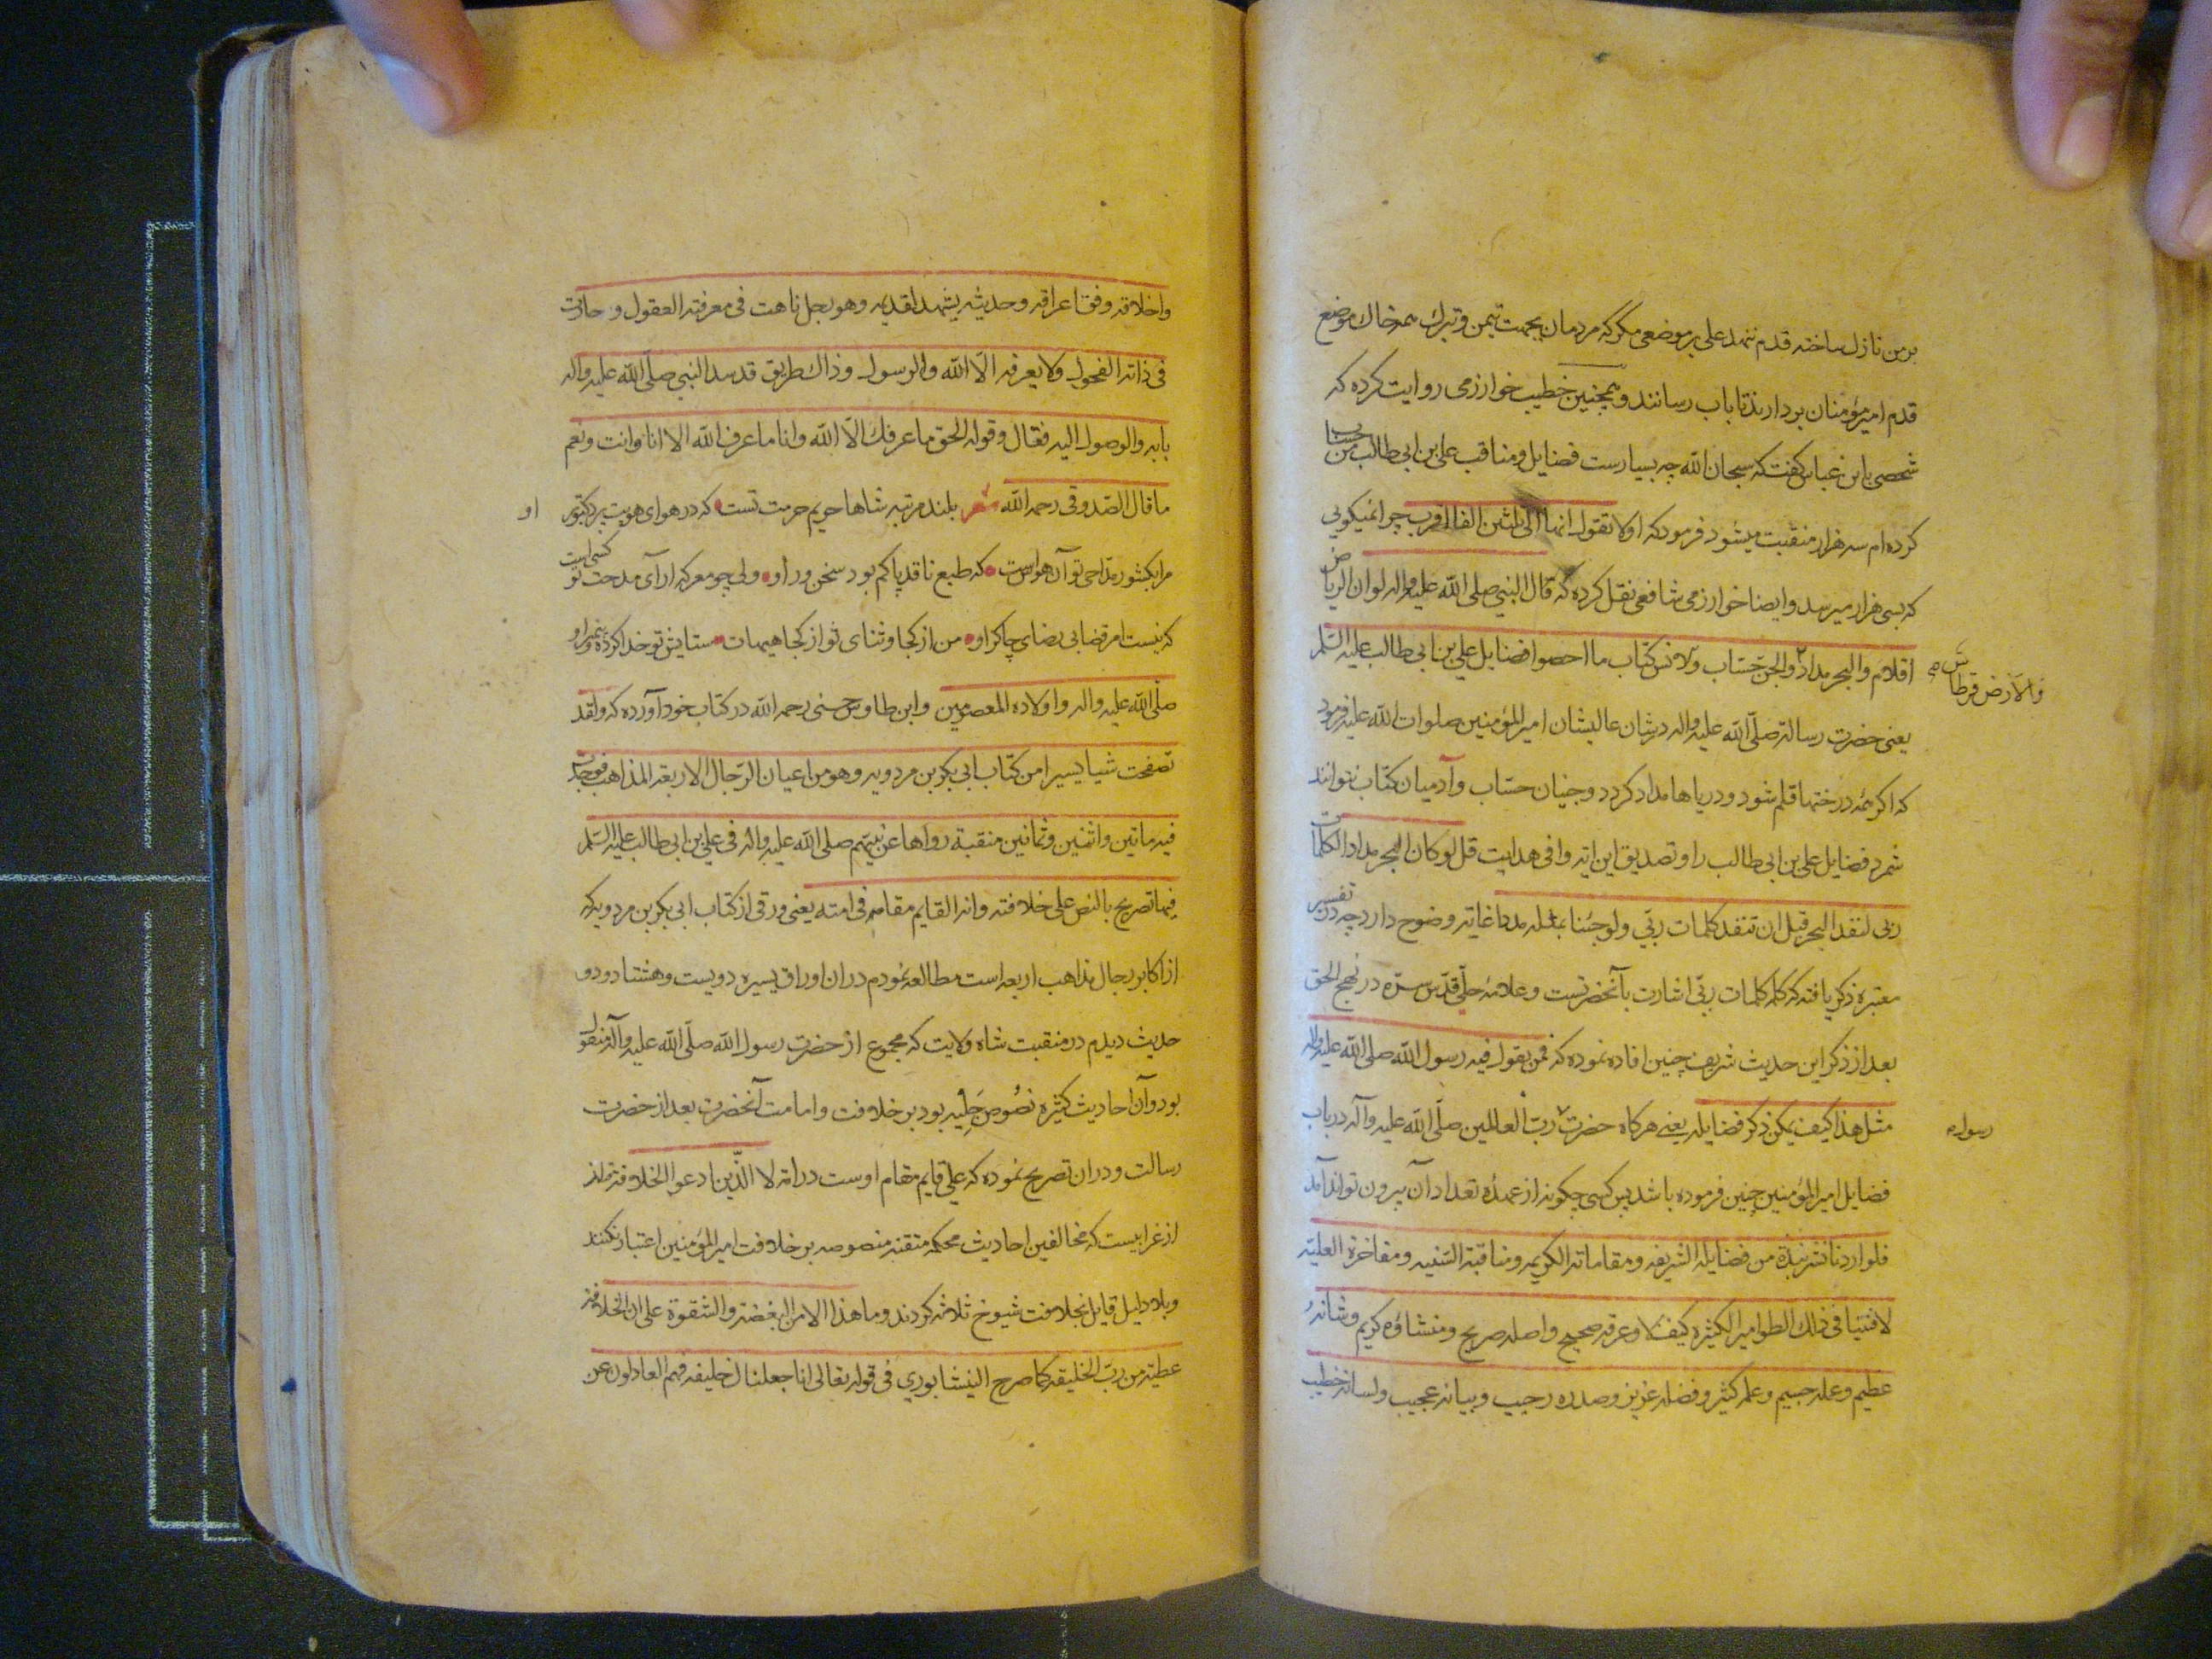 برمن نازل ساخته قدم ننهد علی بر موضعی مکر که مردمان بجهت تیمن و تبرك همه خاك موضع
قدم امیرمؤمنان بردارند تا باب رسانند و همچنین خطیب خوارزمی روایت کرده که
شخصی بابن عباس کفت که سبحان الله چه بسیارست فضایل و مناقب علی بن ابی طالب من
کرده ام سه هزار منقبت میشود فرمود که اولا تقول انها الی ثلثین الفا اقرب چرا نمیکویی
که بسی هزار میرسد وایضا خوارزمی شافعی نقل کرده که قال النبی صلی الله علیه واله لو ان الریاض
اقلام والبحر مداد والجن حساب والانس کتاب ما احصوا فضایل علی بن ابی طالب علیه السلم
والارض قرطاس
یعنی حضرت رسالت صلی الله علیه واله در شان عالیشان امیر المؤمنین صلوات الله علیه فرمود
که اکر همه درختها قلم شود و دریاها مداد کردد و جنیان حساب و آدمیان کتاب نتوانند
شمرد فضایل علی بن ابی طالب را و تصدیق این ایه وافی هدایت قل لو کان البحر مدادا لکلمات
ربی لنفد البحر قبل ان تنفد کلمات ربی ولو جئنا بمثله مددا غایة وضوح دارد چه در تفسیر
معتبره ذکر یافته که کلمه کلمات ربی اشارت بآنحضرتست و علامه حلی قدس سره در نهج الحق
بعد از ذکر این حدیث شریف چنین افاده نموده که فمن یقول فیه رسول الله صلی الله علیه واله
مثل هذا کیف یمکن ذکر فضایله یعنی هرکاه حضرت رب العالمین صلی الله علیه وآله در باب
رسول
فضایل امیر المؤمنین چنین فرموده باشد پس کسی چکونه از عمده تعداد آن بیرون تواند آمد
فلو اردنا نشر نبذة من فضایله الشریفه ومقاماته الکریمه ومناقبة السنیه ومفاخرة العلیة
لافنینا فی ذلك الطوامیر الکثیره کیف لا وعرقه صحیح واصله صریح ومنشاؤه کریم وشانه
عظیم وعمله جسیم وعلمه کثیر وفضله غزیز وصدره رحیب وبیانه عجیب ولسانه خطیب
واخلاقه وفق اعراقه وحدیثه یشهد لقدیمه وهو بجل تاهت فی معرفته العقول و حارت
فی ذاته الفحول ولا یعرفه الا الله والرسول وذاك طریق قد سد النبی صلی الله علیه واله
بابه والوصول الیه فقال وقوله الحق ما عرفك الا الله وانا وما عرف الله الا انا وانت ونعم
ما قال الصدوقی رحمه الله شعر بلند مرتبه شاها حریم حرمت تست که در هوای هویت پرد کبوتر او
مرا بکشور مداحی تو آن هواست که طبع ناقد پاکم بود سخن ور او ولی چو معرکه ارای مدحت تو کسی است
که نیست امر قضا بی رضای چاکر او من از کجا و ثنای تو از کجا هیهات ستایش تو خدا کرده و پیمبر او
صلی الله علیه واله واولاده المعصومین وابن طاوس حسنی رحمه الله در کتاب خود آورده که ولقد
تصفحت شیا یسیرا من کتاب ابی بکر بن مردویه وهو من اعیان الرجال الاربعة المذاهب فوجدت
فیه ماتین واثنین وثمانین منقبة رواها عن نبیهم صلی الله علیه واله فی علی بن ابی طالب علیه السلم
فیها تصریح بالنص علی خلافته وانه القایم مقامه فی امته یعنی ورقی از کتاب ابی بکر بن مردویه که
از اکابر رجال مذاهب اربعه است مطالعه نمودم دران اوراق یسیره دویست و هشتاد و دو
حدیث دیدم در منقبت شاه ولایت که مجموع از حضرت رسول الله صلی الله علیه وآله منقول
بود و آن احادیث کثیره نصوص جلیه بود بر خلافت و امامت آنحضرت بعد از حضرت
رسالت و دران تصریح نموده که علی قایم مقام اوست در امة لا الذین ادعوا الخلافة فانه
از غرایبست که مخالفین احادیث محکمه متقنه منصوصه بر خلافت امیر المؤمنین اعتبار نکنند
وبلا دلیل قایل بخلافت شیوخ ثلاثه کردند وما هذا الا من البغضة والشقوة علی ان الخلافة
عطیة من رب الخلیقه کما صرح النیشابوری فی قوله تعالی انا جعلناك خلیفه فهم العادلون عن